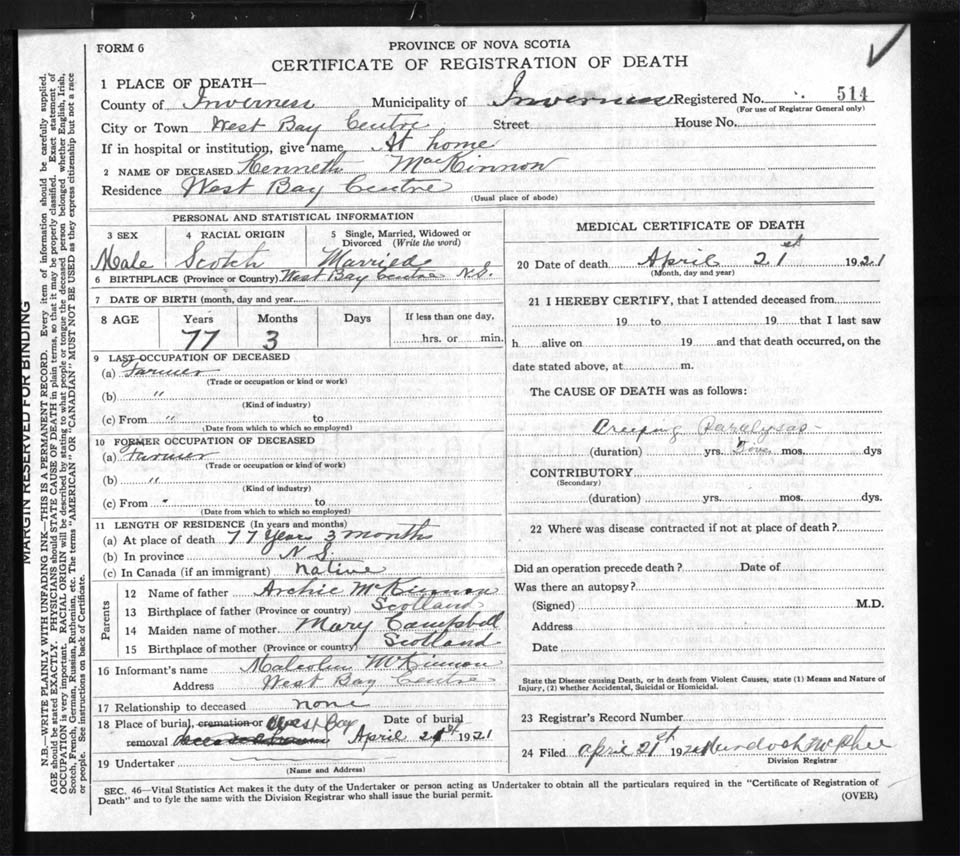 FORM 6
PROVINCE OF NOVA SCOTIA
CERTIFICATE OF REGISTRATION OF DEATH
1 PLACE OF DEATH—
County of Inverness Municipality of Inverness Registered No. 514
(For use of Registrar General only)
City or Town West Bay Centre Street House No.
If in hospital or institution, give name At home
2 NAME OF DECEASED Kenneth MacKinnon
Residence West Bay Centre
(Usual place of abode)
PERSONAL AND STATISTICAL INFORMATION
3 SEX 4 RACIAL ORIGIN 5 Single, Married, Widowed or Divorced (Write the word)
Male Scotch Married
6 BIRTHPLACE (Province or Country) West Bay Centre N.S.
7 DATE OF BIRTH (month, day and year)
8 AGE Years Months Days If less than one day,
77 3 hrs. or min.
9 LAST OCCUPATION OF DECEASED
(a) Farmer
(Trade or occupation or kind or work)
(b) "
(Kind of industry)
(c) From " to
(Date from to which so employed)
10 FORMER OCCUPATION OF DECEASED
(a) Farmer
(Trade or occupation or kind of work)
(b) "
(Kind of industry)
(c) From " to
(Date from to which so employed)
11 LENGTH OF RESIDENCE (In years and months)
(a) At place of death 77 years 3 months
(b) In province N S
(c) In Canada (if an immigrant) native
Parents
12 Name of father Archie McKinnon
13 Birthplace of father (Province or country) Scotland
14 Maiden name of mother Mary Campbell
15 Birthplace of mother (Province or country) Scotland
16 Informant's name Malcolm McKinnon
Address West Bay Centre
17 Relationship to deceased none
18 Place of burial, cremation or West Bay Date of burial
removal April 21st 1921
19 Undertaker
(Name and Address)
MEDICAL CERTIFICATE OF DEATH
20 Date of death April 21st 1921
(Month, day and year)
21 I HEREBY CERTIFY, that I attended deceased from
19 to 19 that I last saw
h alive on 19 and that death occurred, on the
date stated above, at m.
The CAUSE OF DEATH was as follows:
Creeping Paralysas
(duration) yrs. mos. dys
CONTRIBUTORY
(Secondary)
(duration) yrs. mos. dys.
22 Where was disease contracted if not at place of death?
Did an operation precede death? Date of
Was there an autopsy?
(Signed) M.D.
Address
Date
State the Disease causing Death, or in death from Violent Causes, state (1) Means and Nature of
Injury, (2) whether Accidental, Suicidal or Homicidal.
23 Registrar's Record Number
24 Filed April 21st 1921 Murdoch McPhee
Division Registrar
SEC. 46—Vital Statistics Act makes it the duty of the Undertaker or person acting as Undertaker to obtain all the particulars required in the "Certificate of Registration of
Death" and to fyle the same with the Division Registrar who shall issue the burial permit.
(OVER)
MARGIN RESERVED FOR BINDING
N.B.—WRITE PLAINLY WITH UNFADING INK—THIS IS A PERMANENT RECORD. Every item of information should be carefully supplied.
AGE should be stated EXACTLY. PHYSICIANS should STATE CAUSE OF DEATH in plain terms, so that it may be properly classified. Exact statement of
OCCUPATION is very important. RACIAL ORIGIN will be described by stating to what people or tongue the deceased person belonged whether English, Irish,
Scotch, French, German, Russian, Ruthenian, etc. The terms "AMERICAN" OR "CANADIAN" MUST NOT BE USED as they express citizenship but not a race
or people. See instructions on back of Certificate.